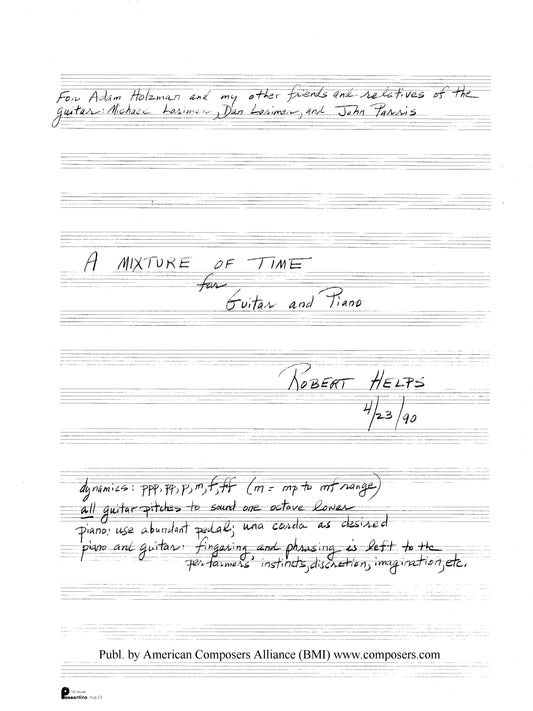 For Adam Holzman and my other friends and relatives of the
guitar: Michael Lorimer, Dan Lorimer, and John Parris
A MIXTURE OF TIME
for
Guitar and Piano
ROBERT HELPS
4/23/90
dynamics: ppp, pp, p, m, f, ff (m = mp to mf range)
all guitar pitches to sound one octave lower
piano: use abundant pedal; una corda as desired
piano and guitar: fingering and phrasing is left to the
performers' instincts, discretion, imagination, etc.
Publ. by American Composers Alliance (BMI) www.composers.com
Passantino